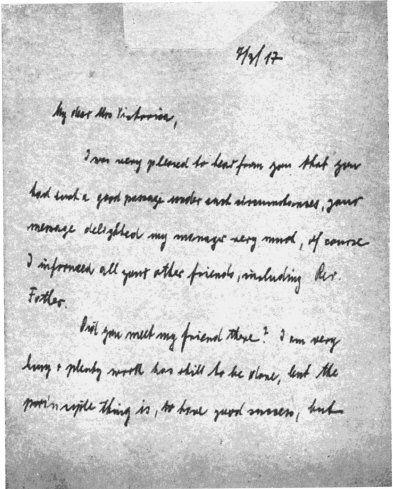 7/3/17
My dear Mrs Victorica,
I was very pleased to hear from you that you
had such a good passage under such circumstances, your
message delighted my manager very much, of course
I informed all your other friends, including Rev.
Father.
Did you meet my friend there? I am very
busy + plenty work has still to be done, but the
principle thing is, to have good success, but